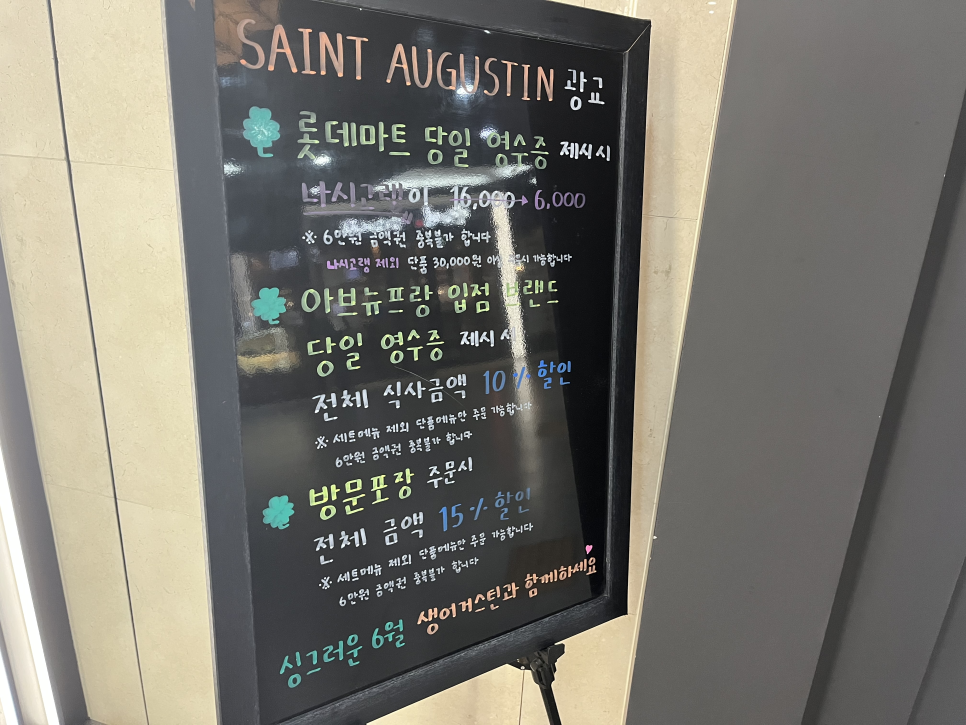 SAINT AUGUSTIN 광교
롯데마트 당일 영수증 제시 시
나시고랭이 16,000→6,000
※ 6만원 금액권 중복불가 합니다
나시고랭 제외 단품 30,000원 가능합니다
아브뉴프랑 입점 브랜드
당일 영수증 제시 시
전체 식사금액 10% 할인
※ 세트메뉴 제외 단품메뉴만 주문 가능합니다
6만원 금액권 중복불가 합니다
방문포장 주문시
전체 금액 15% 할인
※ 세트메뉴 제외 단품메뉴만 주문 가능합니다
6만원 금액권 중복불가 합니다
싱그러운 6월 생어거스틴과 함께하세요